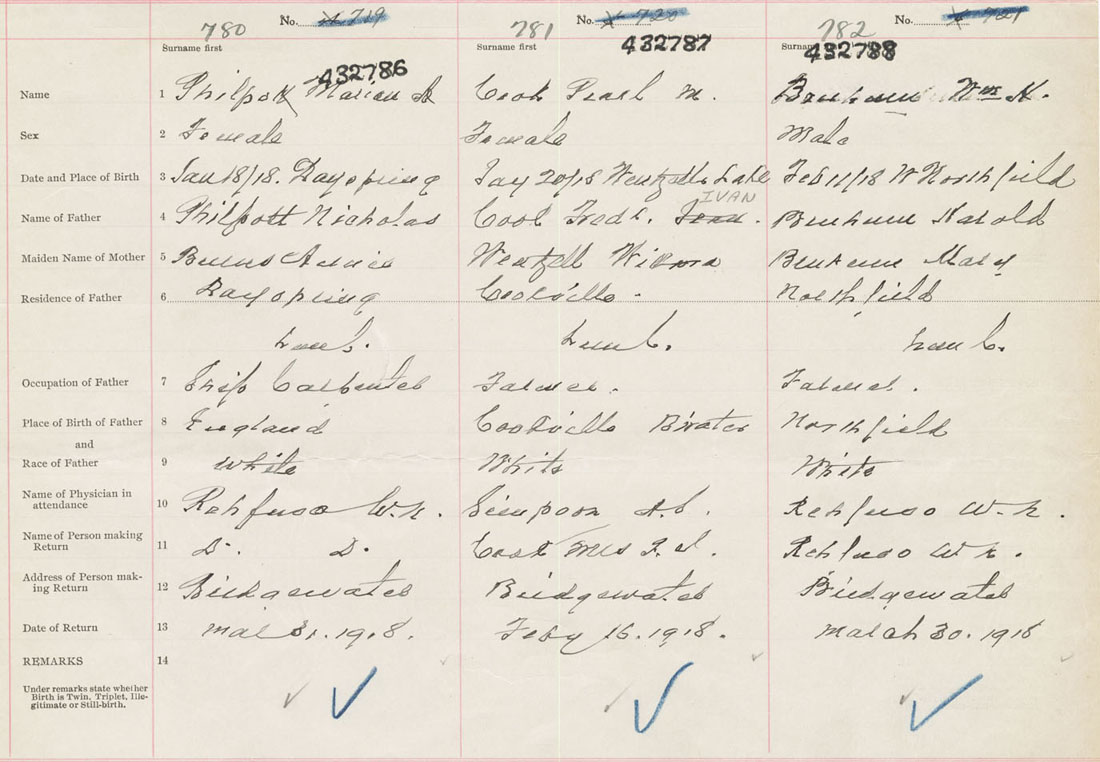 780 No. 719 781 No. 720 782 No. 721
Surname first Surname first
432786 432787 432788
Name 1 Philpott Marion A Cook Pearl M. Benham Wm H.
Sex 2 Female Female Male
Date and Place of Birth 3 Jan 18/18. Dayspring Jay 20/18 Wentzells Lake Feb 11/18 W Northfield
IVAN
Name of Father 4 Philpott Nicholas Cook Fredk. Benham Harold
Maiden Name of Mother 5 Burns Annie Wentzell Benham Mary
Residence of Father 6 Dayspring Cookville - Northfield
Lun C. Lun C. Lun C.
Occupation of Father 7 Ship Carpenter Farmer. Farmer.
Place of Birth of Father 8 England Cookville B'water Northfield
and
Race of Father 9 White White White
Name of Physician in
attendance 10 Rehfuss W. H. Simpson A. C. Rehfuss W. H.
Name of Person making
Return 11 D. D. Cook Mrs F. I. Rehfuss W H.
Address of Person mak-
ing Return 12 Bridgewater Bridgewater Bridgewater
Date of Return 13 Mar 31. 1918. Feby 16. 1918. March 30. 1918
REMARKS 14
Under remarks state whether
Birth is Twin, Triplet, Ille-
gitimate or Still-birth.